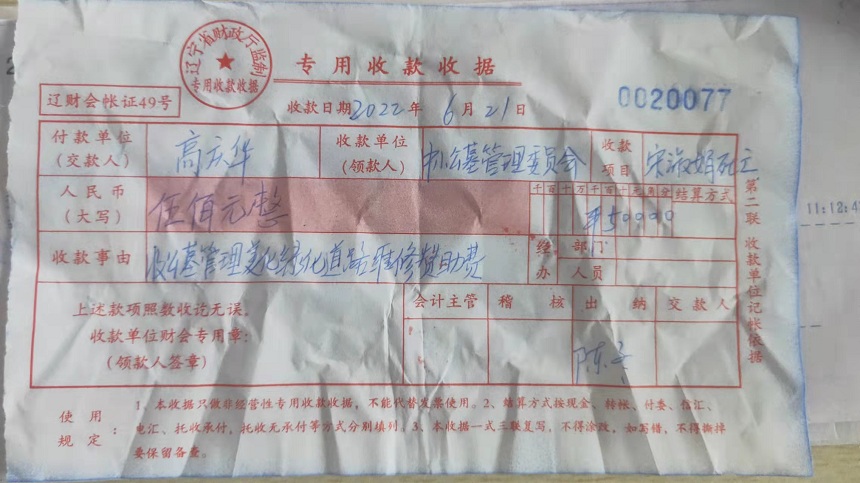 辽宁省财政厅监制
专用收款收据
专用收款收据
辽财会帐证49号
收款日期2022年6月21日
0020077
付款单位
(交款人)
高庆华
收款单位
(领款人)
公墓管理委员会
收款
项目
宋淑娟死亡
人民币
(大写)
伍佰元整
千百十万千百十元角分
结算方式
¥50000
收款事由
收公墓管理美化绿化道路维修赞助费
经办
部门
人员
上述款项照数收讫无误。
收款单位财会专用章:
(领款人签章)
会计主管
稽核
出纳
交款人
陈
第二联 收款单位记帐依据
使用
规定:
1、本收据只做非经营性专用收款收据,不能代替发票使用。2、结算方式按现金、转帐、付委、信汇、
电汇、托收承付,托收无承付等方式分别填列。3、本收据一式三联复写,不得涂改,如写错,不得撕掉
要保留备查。
11:12:4